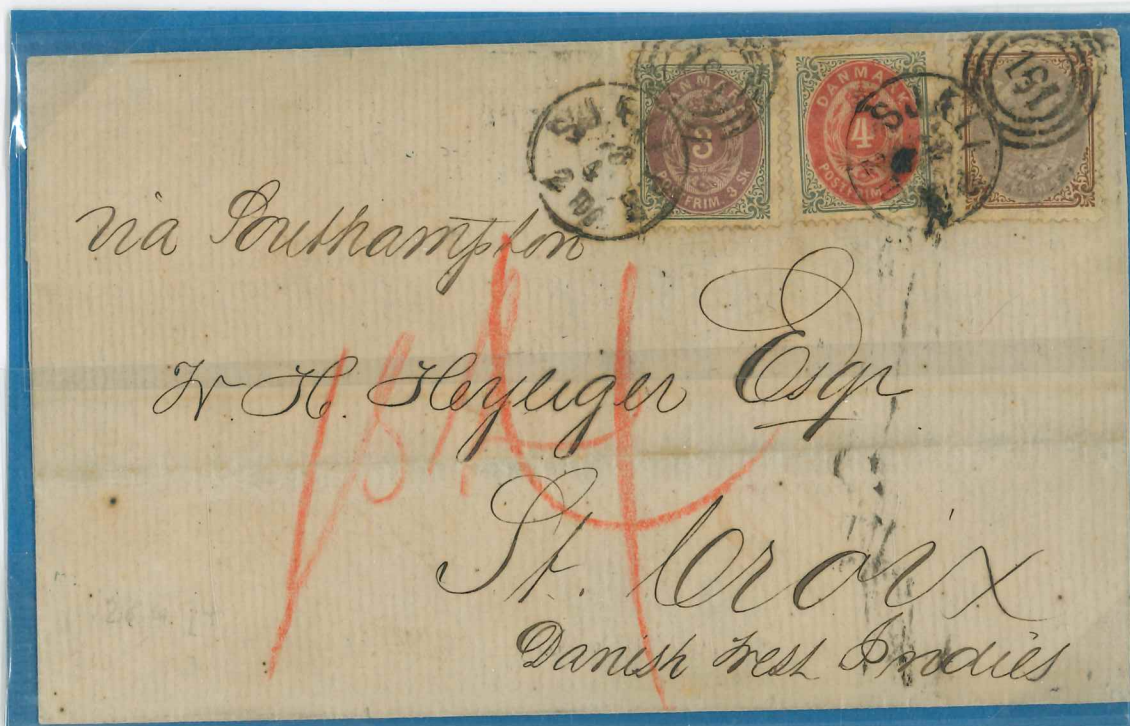 DANMARK
3
POSTFRIM. 3 SK
DANMARK
4
POSTFRIM.
151
via Southampton
W H. Heyliger Esqr
St. Croix
Danish West Indies